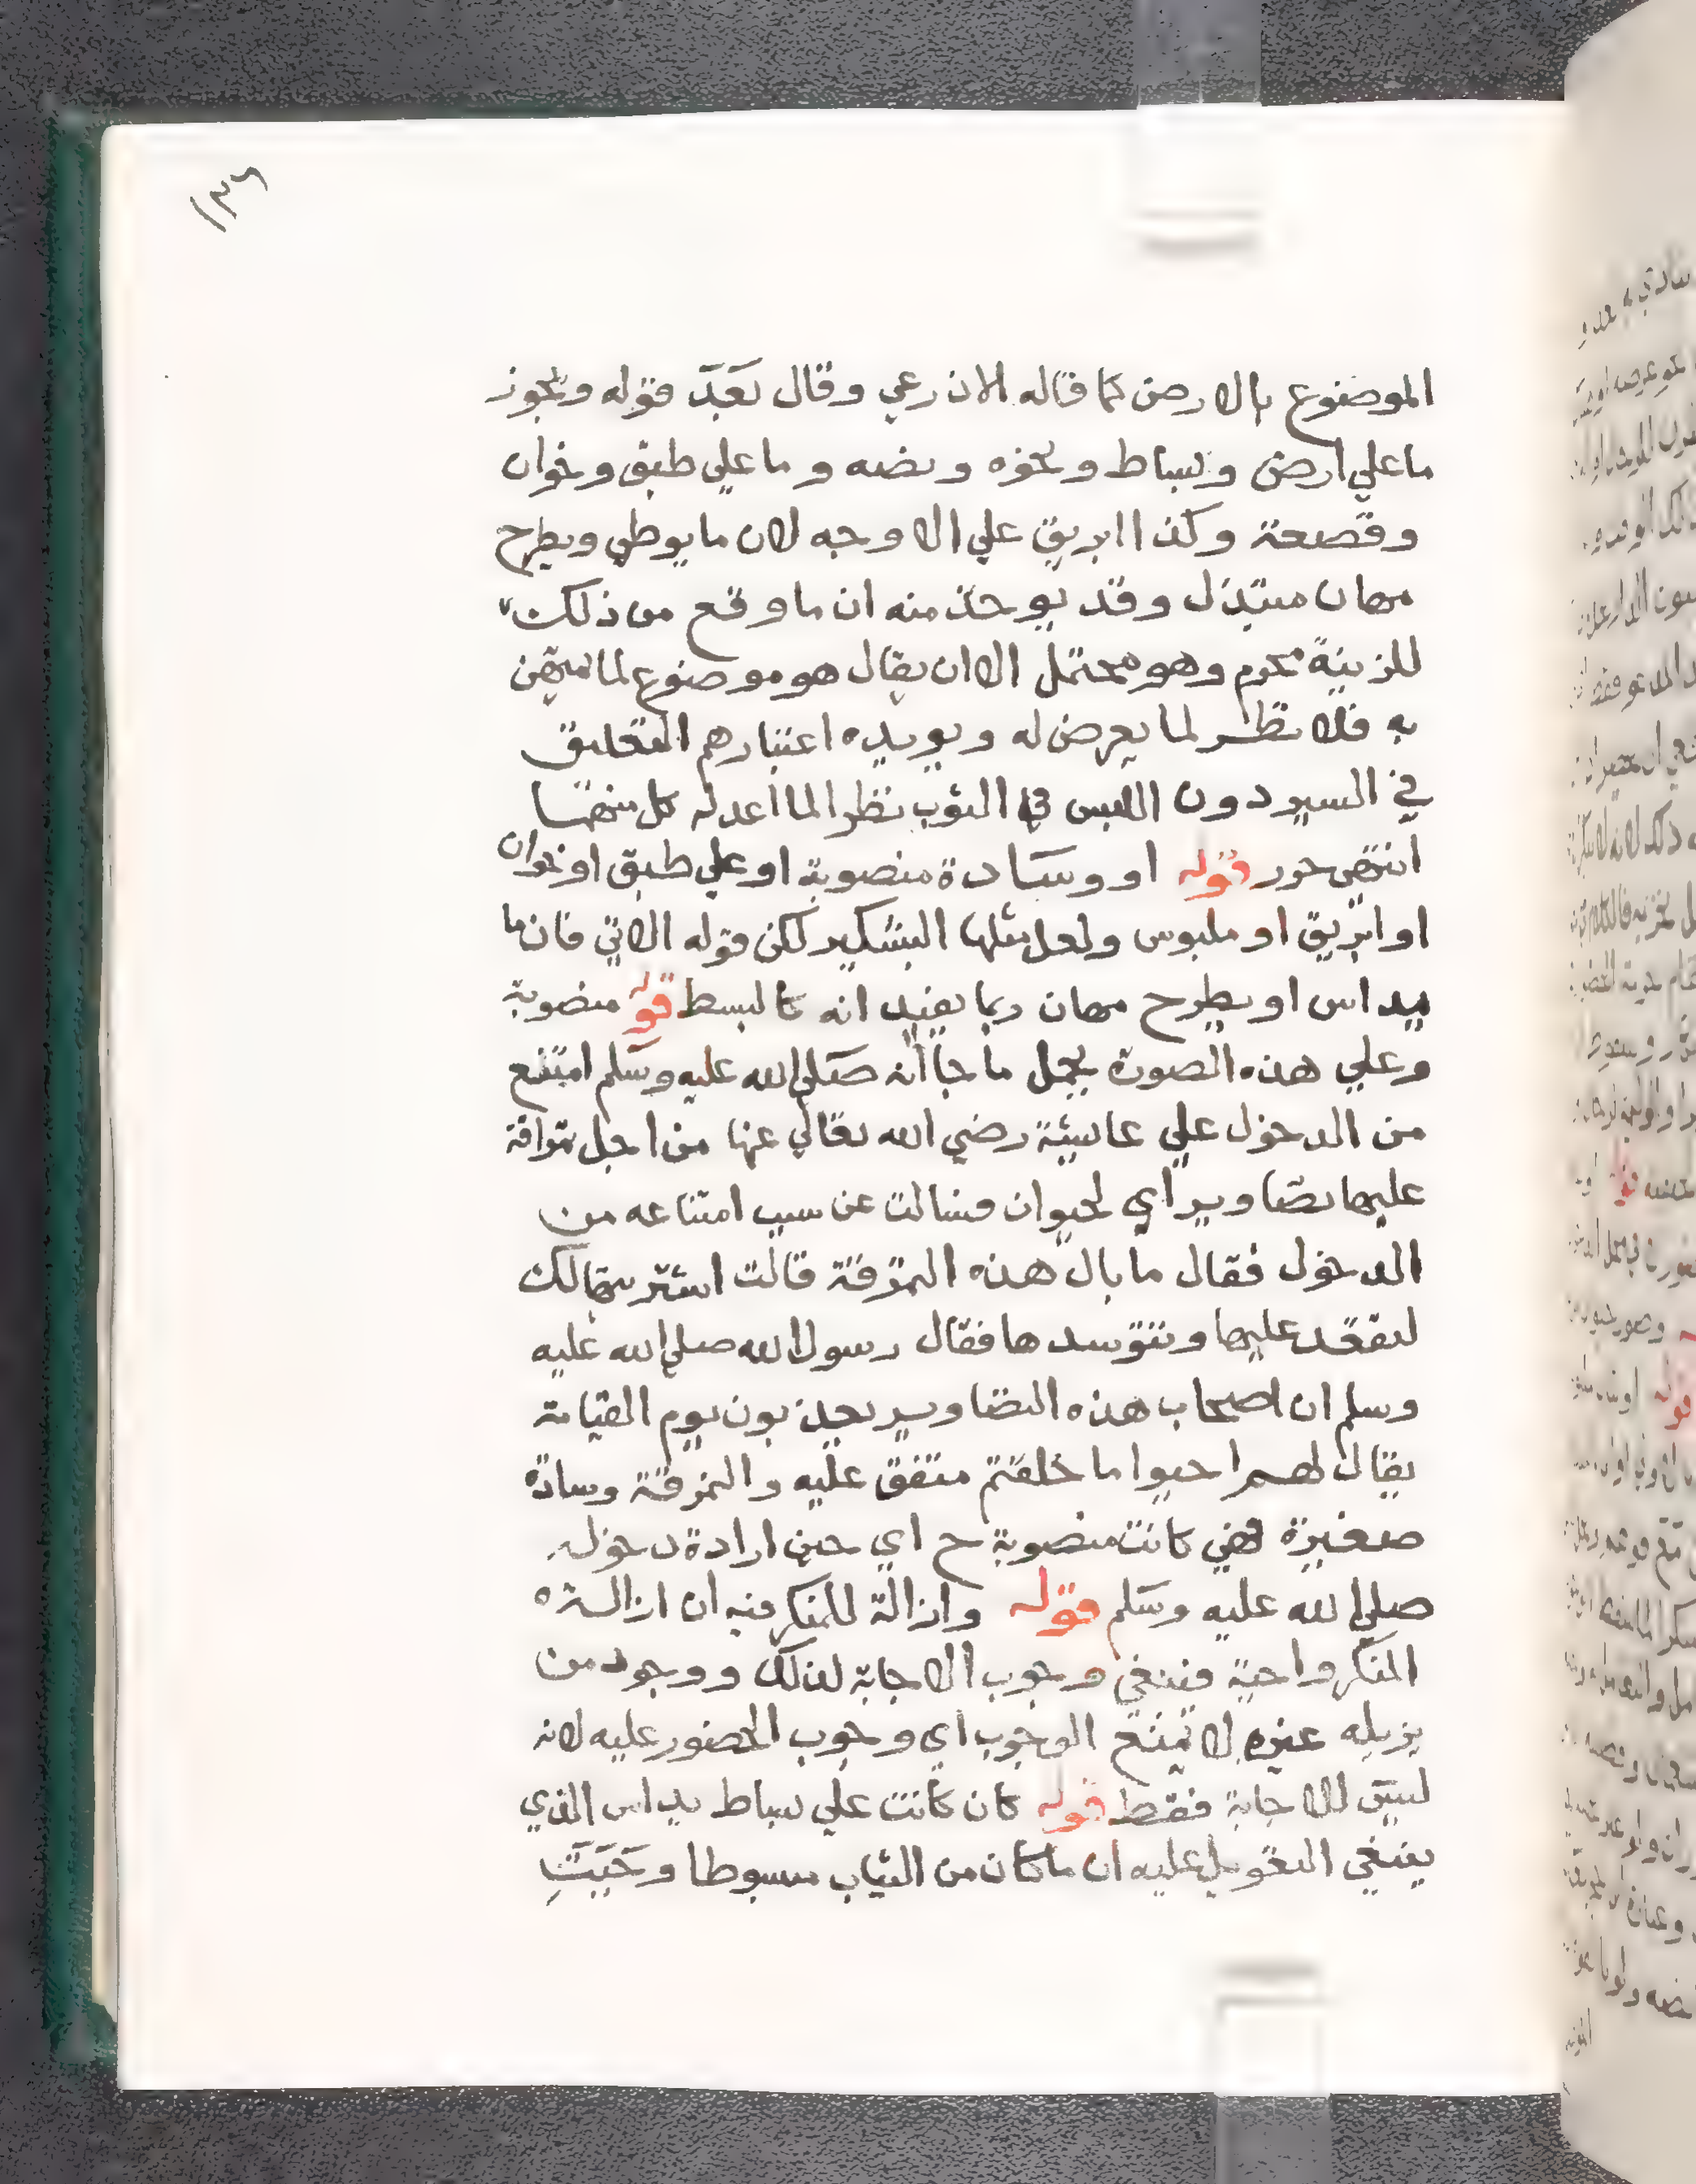 ١٣٦
الموضوع بالارض كما قاله الاذرعي وقال بعد قوله ويجوز
ما علي ارض وبساط ونحوه ونصه وما علي طبق وخوان
وقصعة وكذا ابريق علي الاوجه لان ما يوطي ويطرح
مهان مبتذل وقد يوخذ منه ان ما وقع من ذلك
للزينة محرم وهو محتمل الا ان يقال هو موضوع لما يمتهن
به فلا نظر لما يعرض له ويويده اعتبارهم التعليق
في الستر دون اللبس في الثوب نظرا لما اعد له كل منهما
انتهي حور قوله او وسادة منصوبة او علي طبق او خوان
او ابريق او ملبوس ولعل مثلها البشكير لكن قوله الاتي فان ما
يداس او يطرح مهان ربما يفيد انه كالبسط قوله منصوبة
وعلي هذه الصورة يحمل ما جاانه صلي الله عليه وسلم امتنع
من الدخول علي عايشة رضي الله تعالي عنها من اجل نمرقة
عليها تصاوير اي لحيوان فسالت عن سبب امتناعه من
الدخول فقال ما بال هذه النمرقة قالت اشتريتها لك
لتقعد عليها وتتوسدها فقال رسول الله صلي الله عليه
وسلم ان اصحاب هذه التصاوير يعذبون يوم القيامة
يقال لهم احيوا ما خلقتم متفق عليه والنمرقة وسادة
صغيرة فهي كانت منصوبة ح اي حين ارادة دخوله
صلي الله عليه وسلم قوله وازالة للمنكر فيه ان ازالته
المنكر واجبة فينبغي وجوب الاجابة لذلك ووجود من
يزيله غيره لا يمنع الوجوب اي وجوب الحضور عليه لانه
ليس للاجابة فقط قوله كان كانت علي بساط يداس الذي
ينبغي التعويل عليه ان ما كان من الثياب مبسوطا وحيث